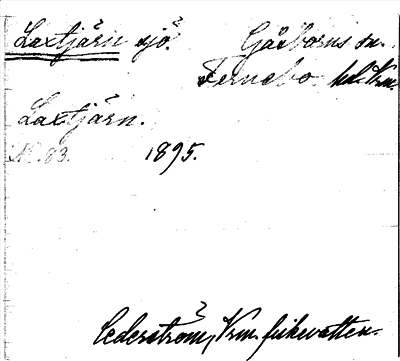 Laxtjärn sjö. Gåsborns sn.
Fernebo hd. Vrm.
Laxtjärn.
N. 83. 1895.
Cederström, Vrm. fiskevatten.